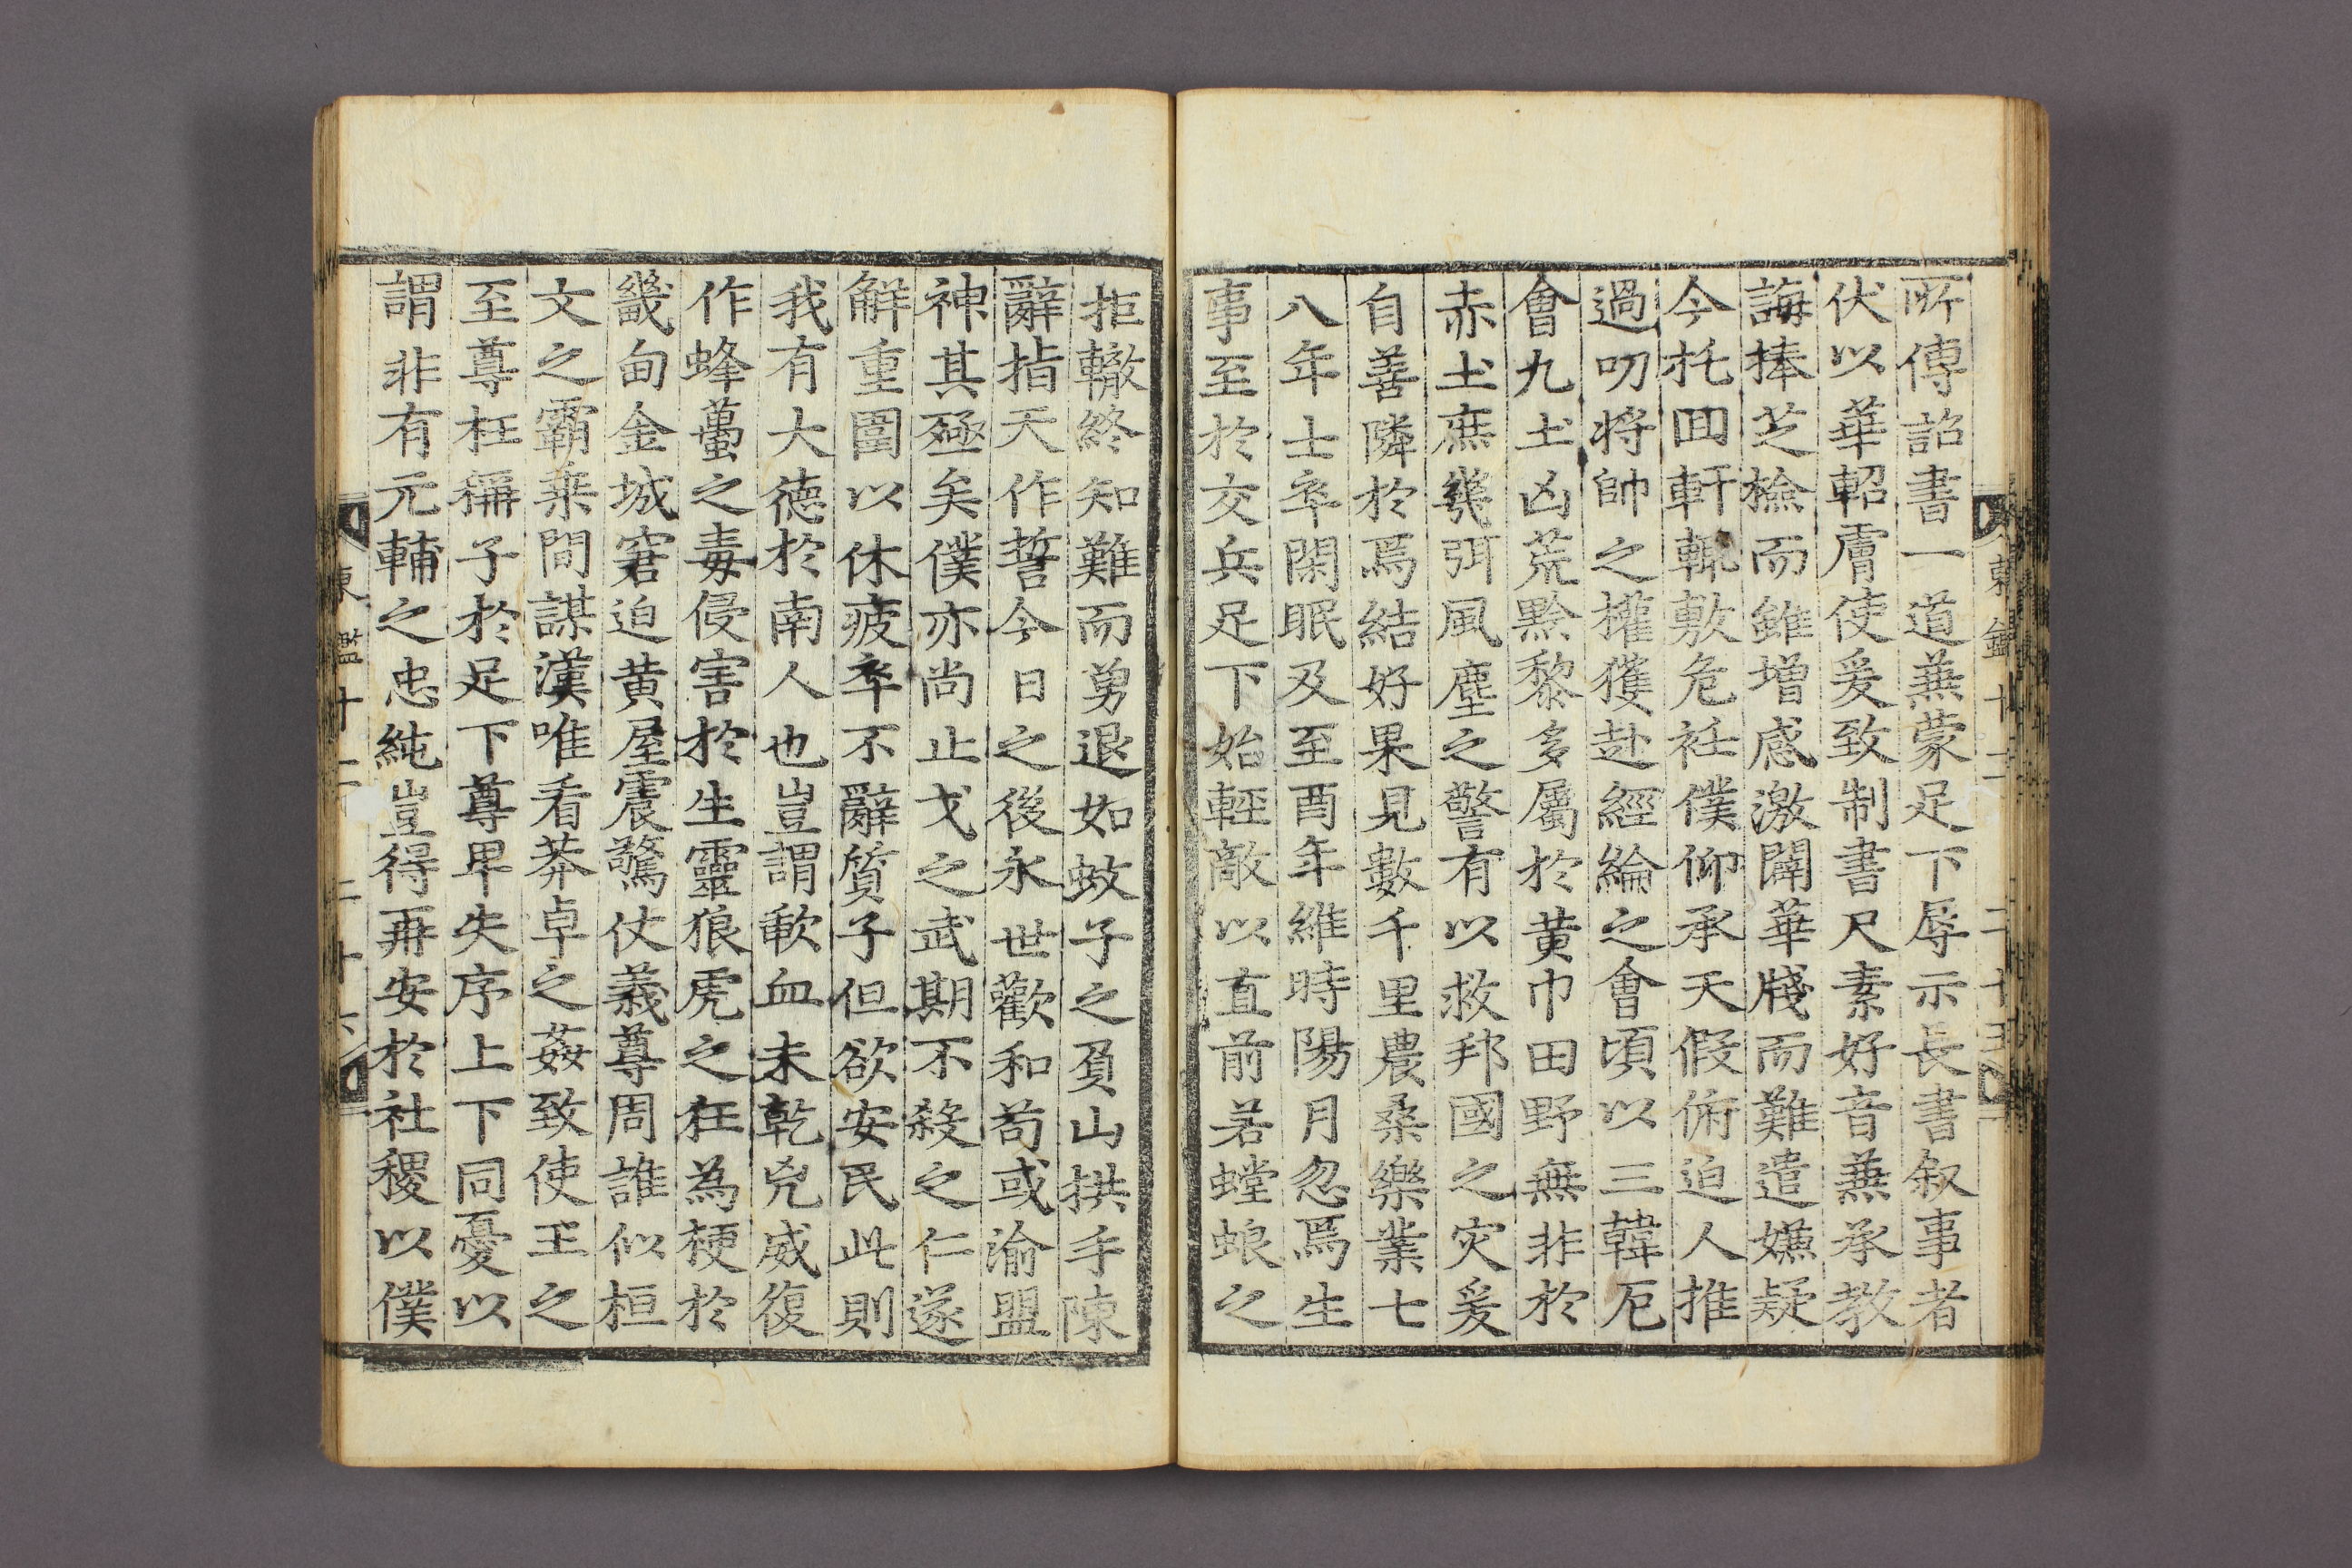 所傳詔書一道兼蒙足下辱示長書叙事者
伏以華軺膚使爰致制書尺素好音兼承教
誨捧芝檢而雖增感激闢華牋而難遣嫌疑
今托回軒輒敷危衽僕仰承天假俯迫人推
過叨將帥之權獲赴經綸之會頃以三韓厄
會九土凶荒黔黎多屬於黄巾田野無非於
赤土庶幾弭風塵之警有以救邦國之灾爰
自善隣於焉結好果見數千里農桑樂業七
八年士卒閑眠及至酉年維時陽月忽焉生
事至於交兵足下始輕敵以直前若螳蜋之
拒轍終知難而勇退如蚊子之負山拱手陳
辭指天作誓今日之後永世歡和苟或渝盟
神其殛矣僕亦尚止戈之武期不殺之仁遂
解重圍以休疲卒不辭質子但欲安民此則
我有大德於南人也豈謂歃血未乾兇威復
作蜂蠆之毒侵害於生靈狼虎之狂為梗於
畿甸金城窘迫黄屋震驚仗義尊周誰似桓
文之霸乘間謀漢唯看莽卓之姦致使王之
至尊枉稱子於足下尊卑失序上下同憂以
謂非有元輔之忠純豈得再安於社稷以僕